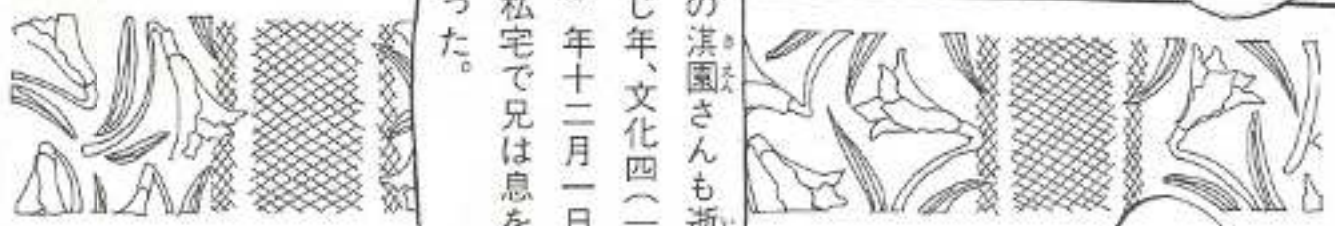 の淇園さんも逝
きえん
い
し年、文化四(一
年十二月一日
私宅で兄は息を
った。